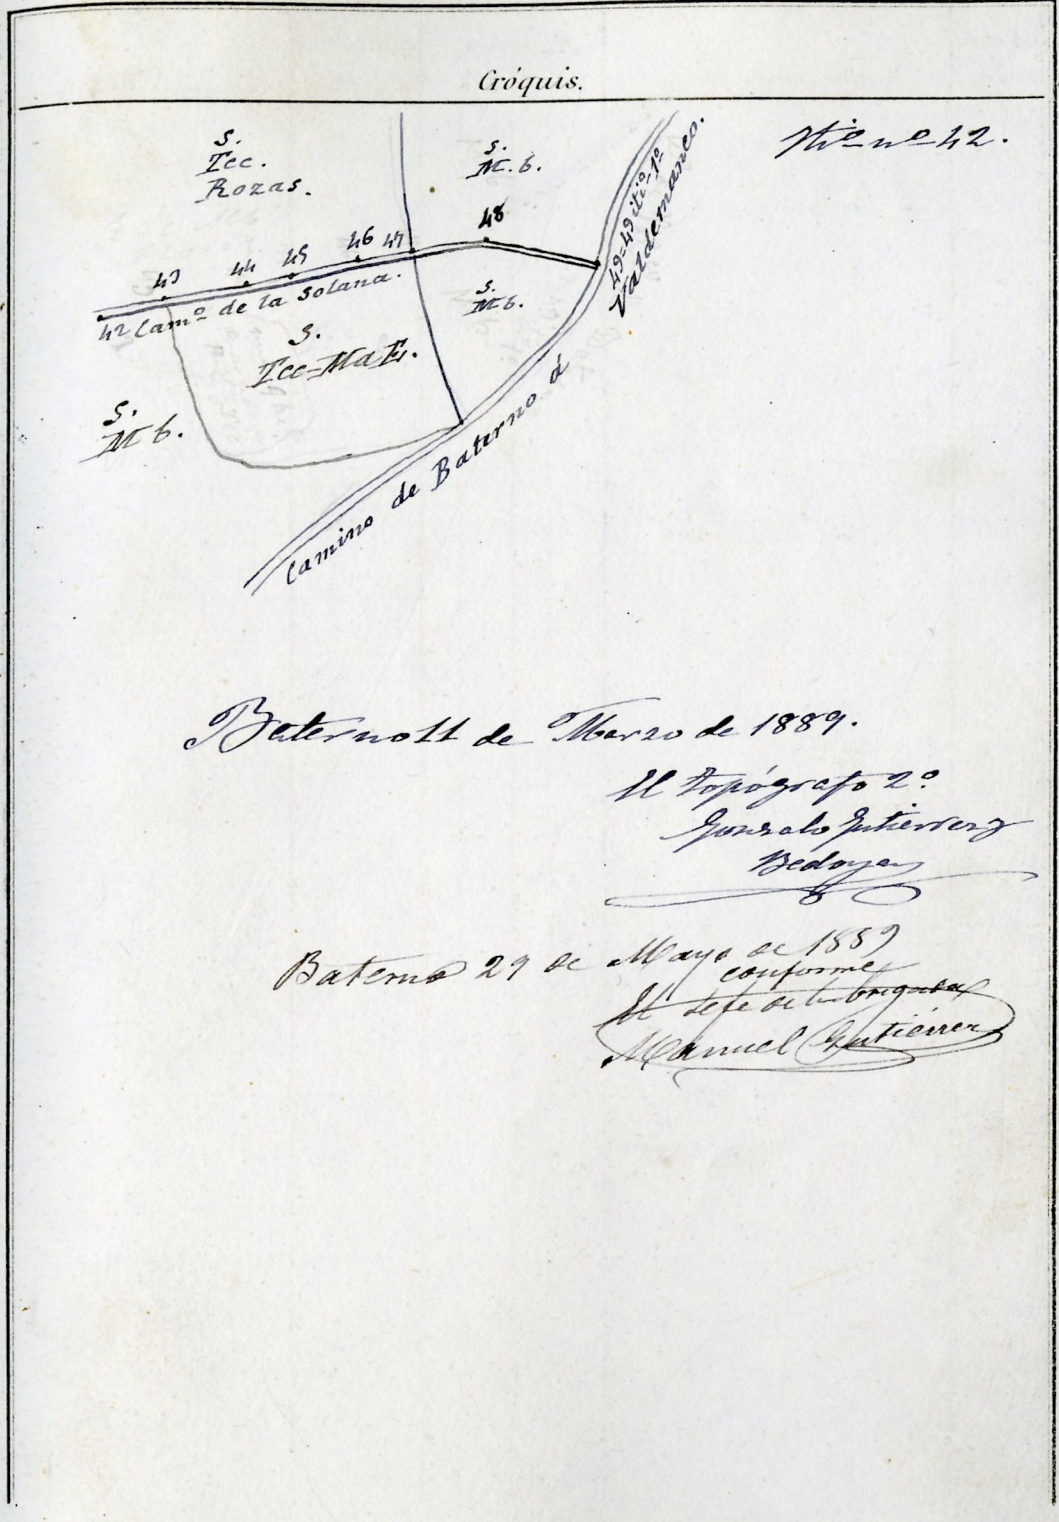 Cróquis.
Itiº nº 42.
S.
Tcc.
Rozas.
S.
M. b.
43 44 45 46 47 48
49=49 itiº 1º
42 Camº de la Solana.
S.
M b.
S.
Tcc=Mat.
S.
M b.
Camino de Baterno á Valdemanco.
Baterno 11 de Marzo de 1889.
El topógrafo 2º
Gonzalo Gutierrez
Bedoya
Baterno 29 de Mayo de 1889
conforme
El Jefe de la brigada
Manuel Gutiérrez